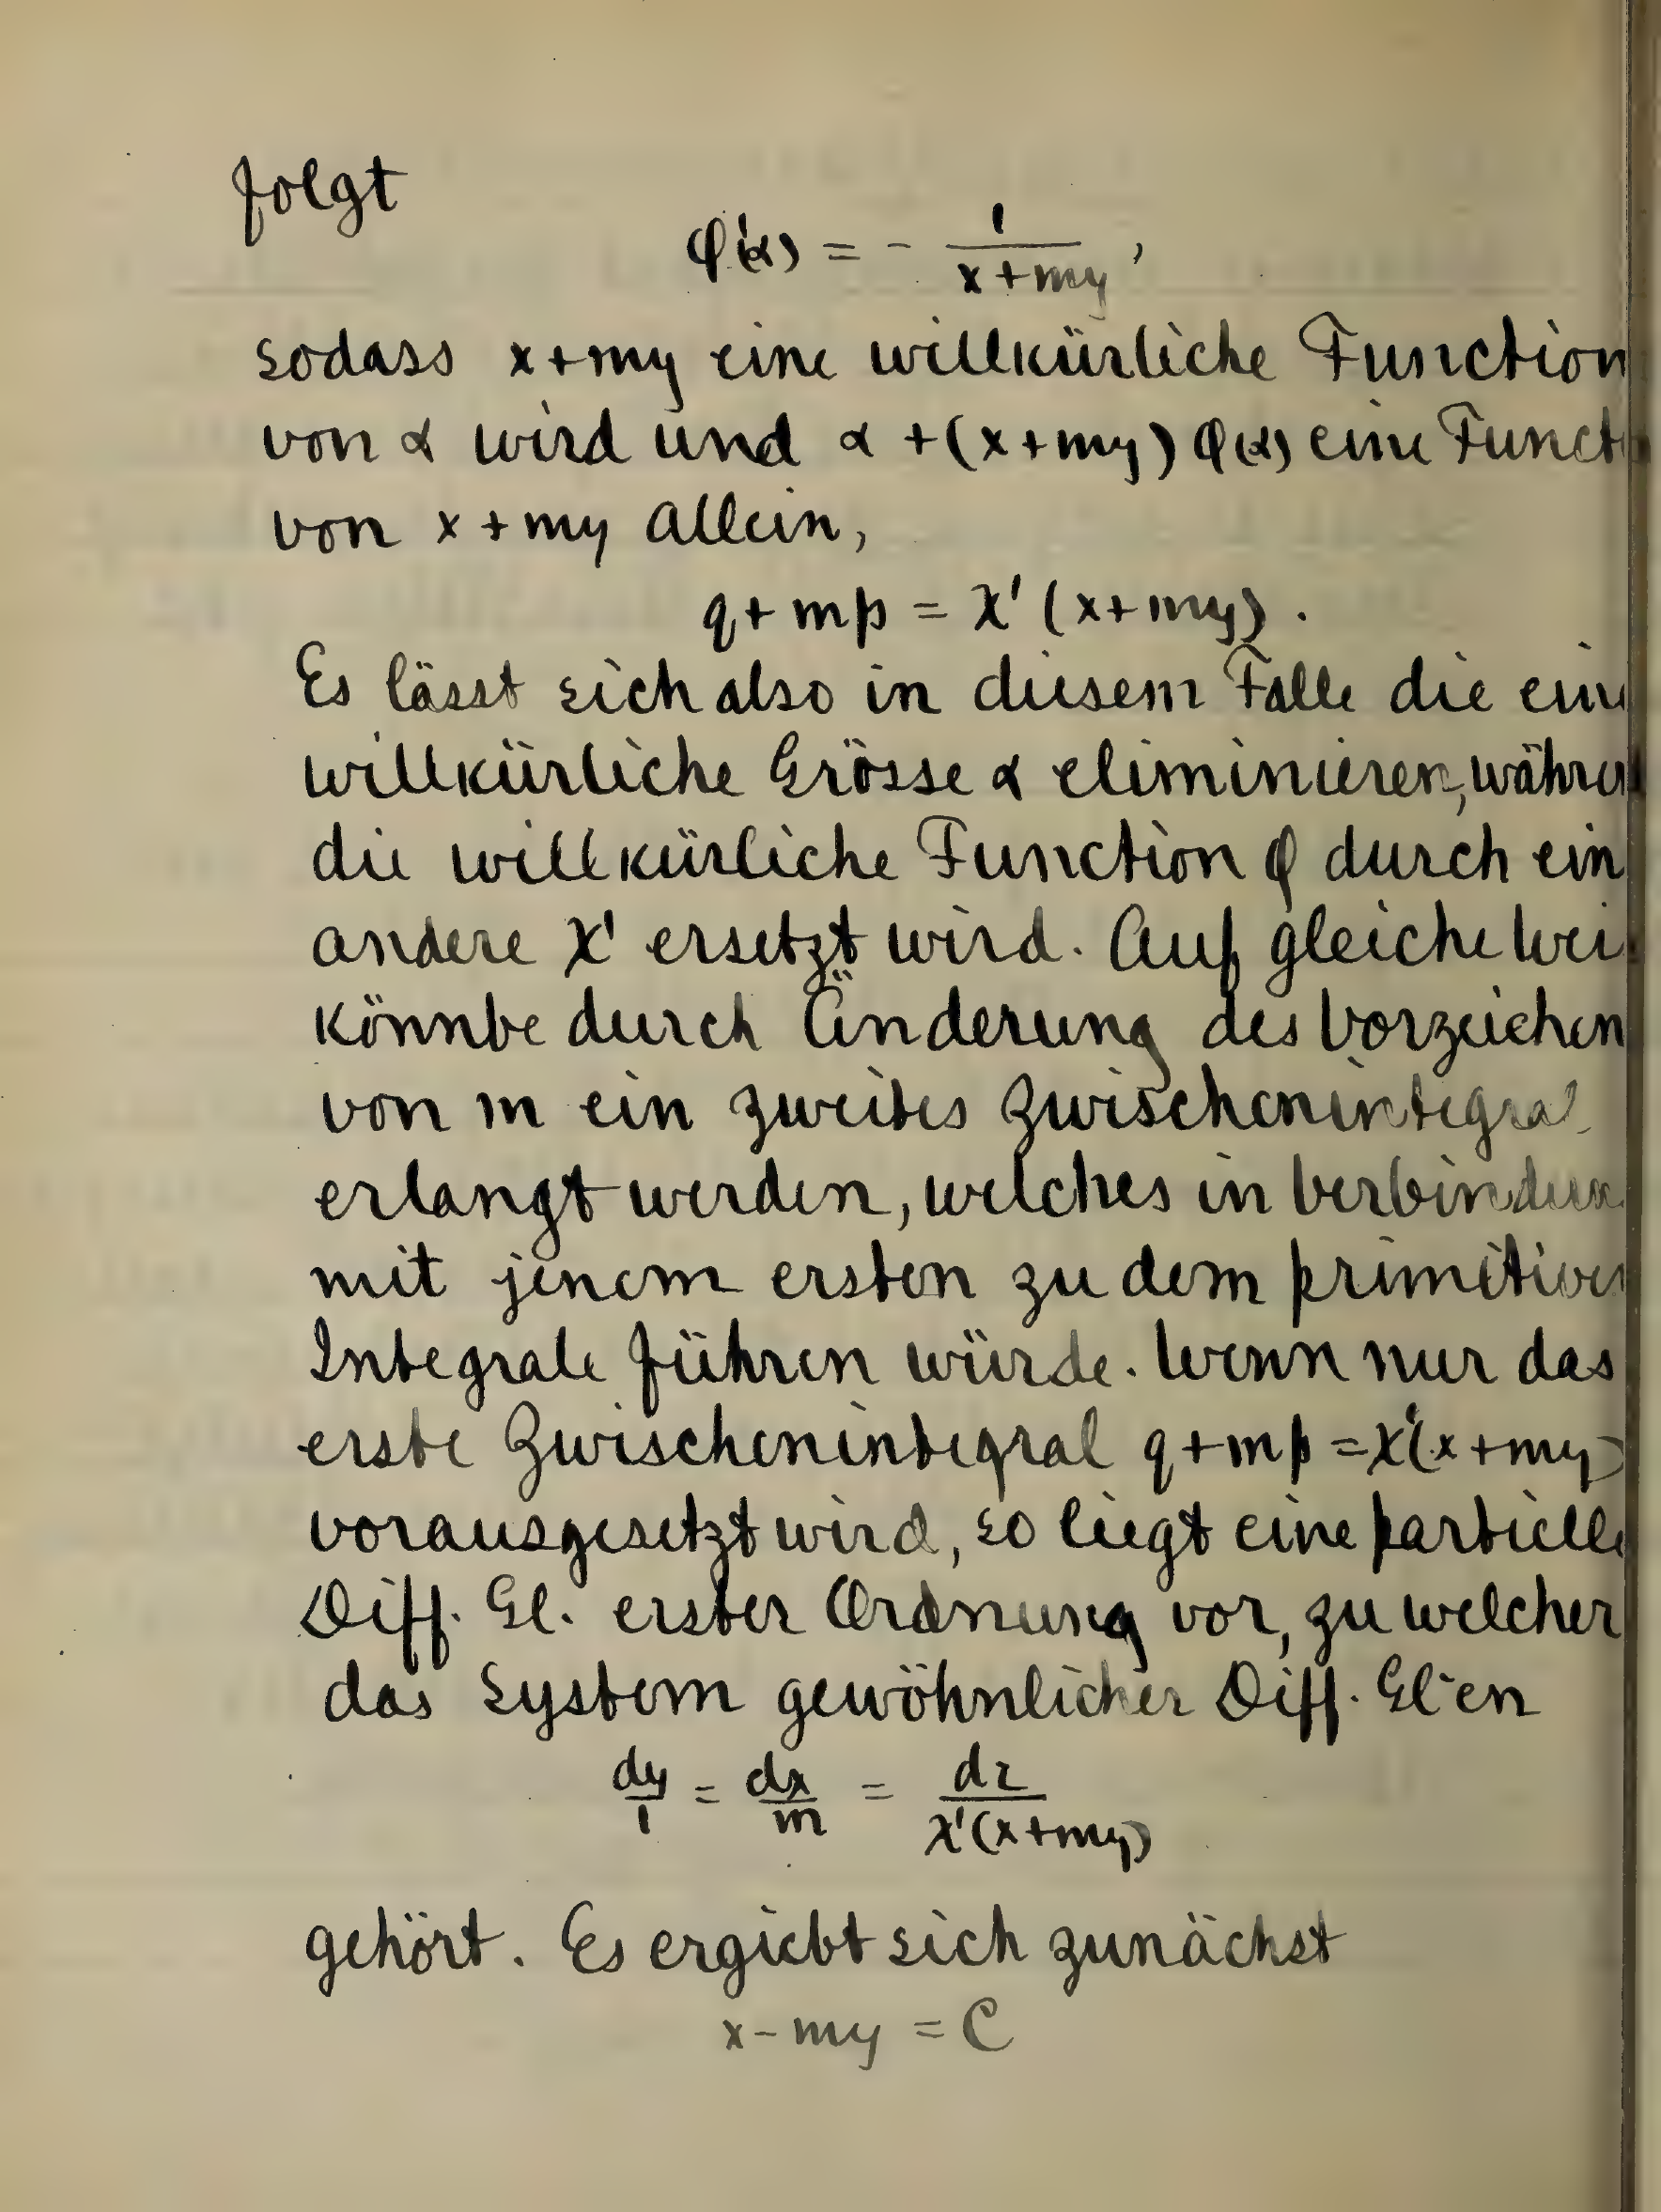 folgt
φ'(α) = - 1/(x+my),
sodass x+my eine willkürliche Function
von α wird und α +(x+my) φ(α) eine Functi
von x+my allein,
q+mp = χ' (x+my).
Es lässt sich also in diesem Falle die eine
willkürliche Grösse α eliminieren, währen
die willkürliche Function φ durch ein
andere χ' ersetzt wird. Auf gleiche Wei
könnte durch Änderung des Vorzeichen
von m ein zweites Zwischenintegral
erlangt werden, welches in Verbindun
mit jenem ersten zu dem primitiven
Integrale führen würde. Wenn nur das
erste Zwischenintegral q+mp=χ'(x+my)
vorausgesetzt wird, so liegt eine partielle
Diff. Gl. erster Ordnung vor, zu welcher
das System gewöhnlicher Diff. Gl-en
dy/1 = dx/m = dz/χ'(x+my)
gehört. Es ergiebt sich zunächst
x-my = C